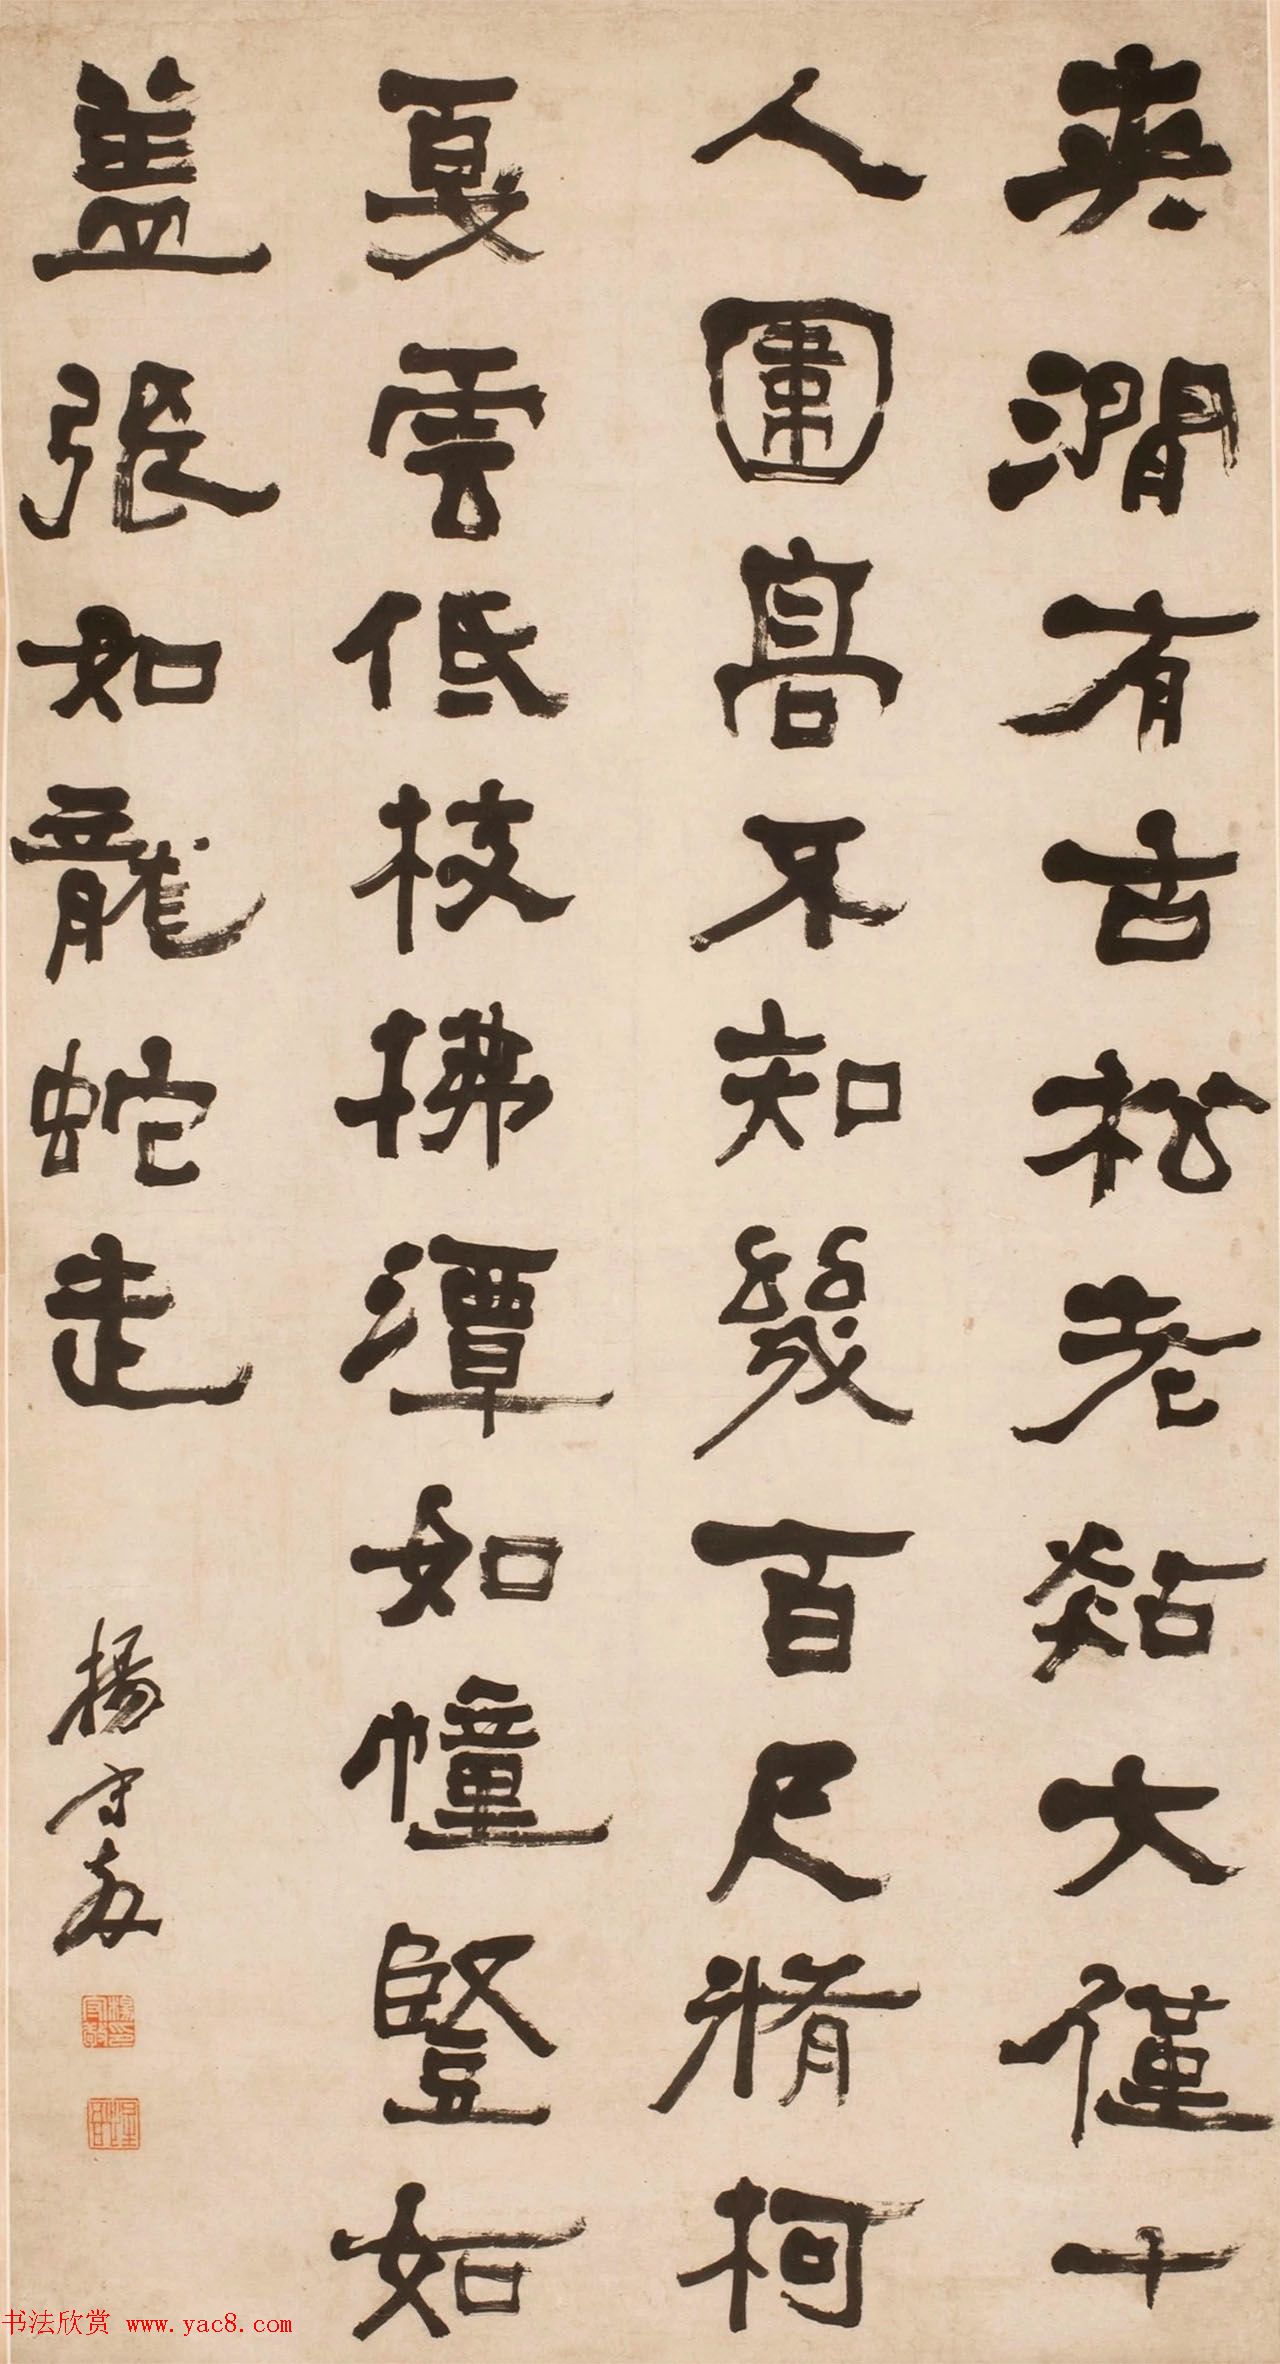 夾澗有古松老𣚦大僅十
人圍高不知幾百尺脩柯
戛雲低枝拂潭如幢豎如
蓋張如龍蛇走
楊守敬
书法欣赏 www.yac8.com